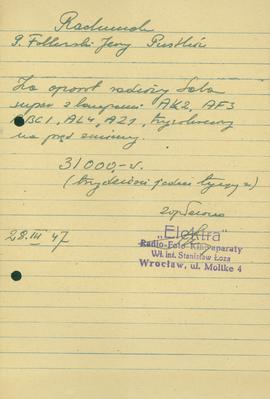 Rachunek
P. Follerski Jerzy Pustków
Za aparat radiowy Saba
super z lampami AK2, AF3
ABC1, AL4, AZ1,
na prąd zmienny.
31000,-
(trzydzieści jeden tysięcy zł)
28.III 47
„Elektra"
Radio-Foto Kinoaparaty
Wł. inż. Stanisław Łoza
Wrocław, ul. Moltke 4